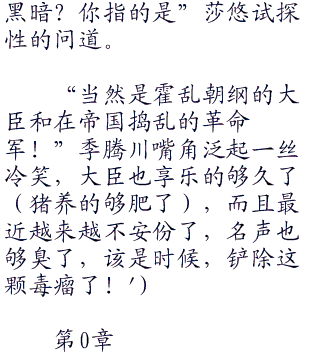 黑暗？你指的是”莎悠试探
性的问道。
“当然是霍乱朝纲的大
臣和在帝国捣乱的革命
军！”季腾川嘴角泛起一丝
冷笑，大臣也享乐的够久了
（猪养的够肥了），而且最
近越来越不安份了，名声也
够臭了，该是时候，铲除这
颗毒瘤了！′）
第0章